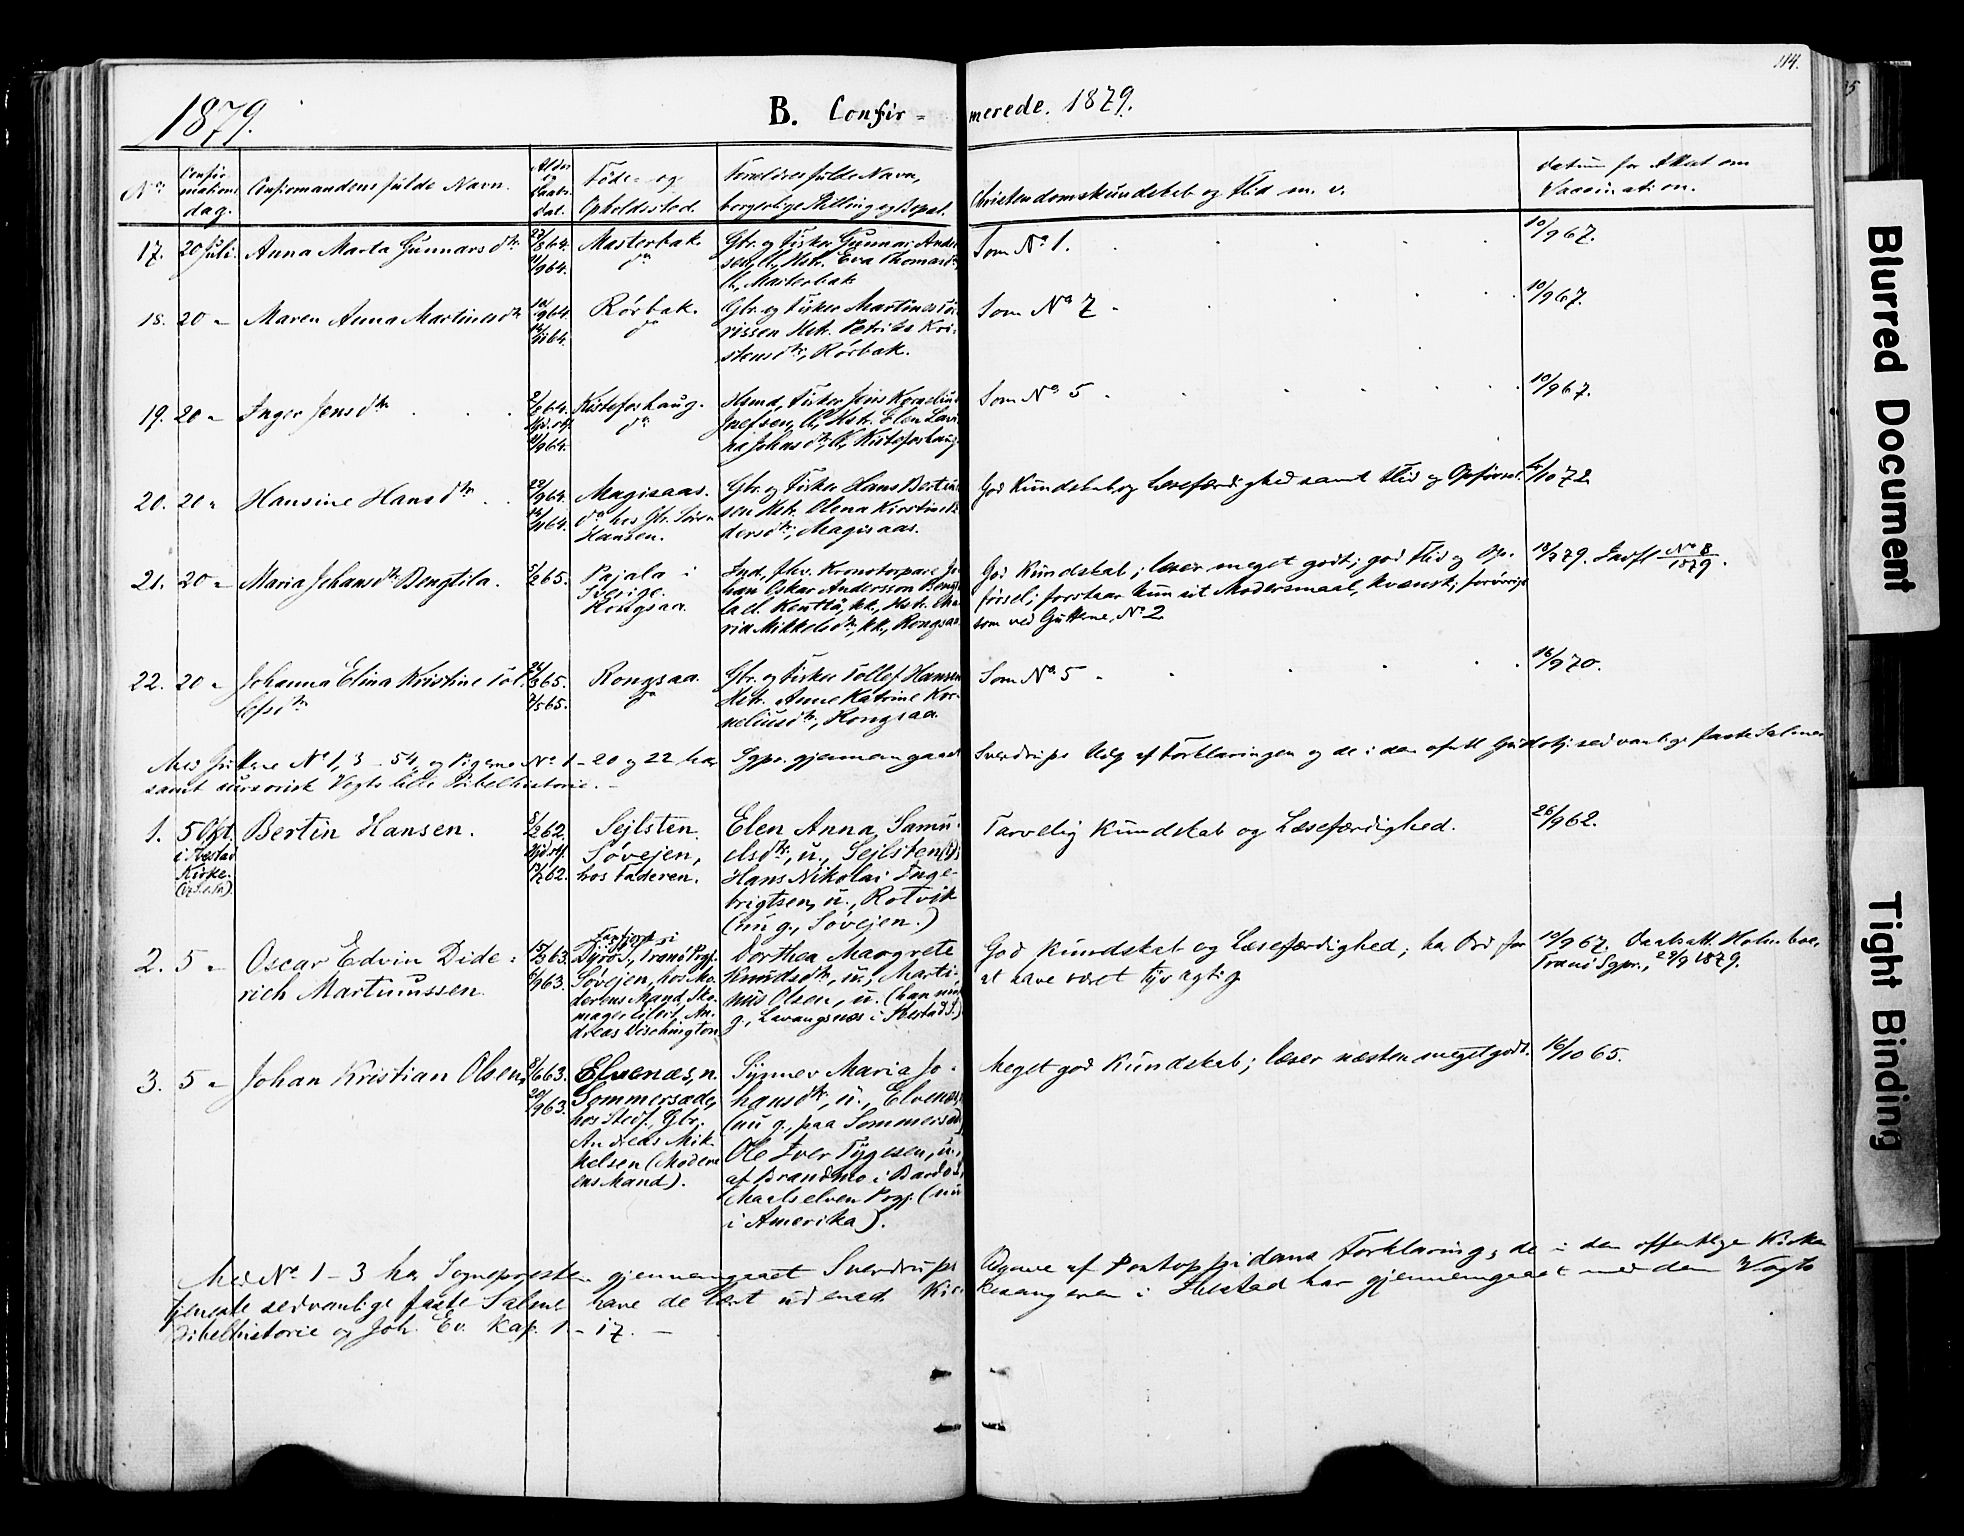 114.
1879.
B. Confir-
merede. 1879.
No
Confirmationsdag.
Confirmandens fulde Navn.
Alder og Daabsdat.
Føde- og Opholdssted.
Forældres fulde Navn, borgerlige Stilling og Bopæl.
Christendomskundskab og Flid m. v.
Datum for Attest om Vaccination.
17. 20 Juli. Anna Marta Gunnarsdtr 27/8 64. 11/9 64. Masterbak. do
Gbr. og Fisker Gunnar Andersen, Hstr. Eva Thomasdtr, Masterbak
Som No 1. 10/9 67.
18. 20 " Maren Anna Martinusdtr 10/9 64. Rörbak. do
Gbr. og Fisker Martines
Hstr. Petrike Kristensdtr, Rörbak.
Som No 7 10/9 67.
19. 20 " Inger Jensdtr Kistefoshaug. do
Fisker Jens Kornelius
Hstr. Elen Johansdtr, Kistefoshaug
Som No 5 10/9 67.
20. 20 " Hansine Hansdtr. 20/9 64. Magisaas. do hos Gbr. Sören Hansen.
Gbr. og Fisker Hans Bertin
sen Hstr. Olena Kristine
dersdtr, Magisaas.
God Kundskab og Læsefærdighed samt Flid og Opførsel. /10 72
21. 20 " Maria Johansdtr Bengtila. 5/2 65. Pajala i Sverige. Rongsaa.
han Oskar Andersson
Hstr. Maria Mikkelsdtr, kk, Rongsaa
God Kundskab; læser meget godt; god Flid og Opførsel; forstaar kun sit Modersmaal, kvænsk; forøvrigt
som ved Guttene, No 2
/7 79. Indfl No 8/1879.
22. 20 " Johanna Elina Kristine Tollefsdtr 24/3 65. 7/5 65. Rongsaa. do
Gbr. og Fisker Tollef Hansen
Hstr. Anne Katrine Korneliusdtr, Rongsaa.
Som No 5 16/9 70.
Med Guttene No 1, 3 - 54, og Pigerne No 1 - 20 og 22 har Sgpr. gjennemgaaet Sverdrups Udg. af Forklaringen og de i den offentl Gudstj. sedvanlige faste Salmer
samt cursorisk Vogts lille Bibelhistorie. -
1. 5 Okt. i Ibestad Kirke. Bertin Hansen. 8/2 62. Sejlsten. Søvejen, hos Faderen.
Elen Anna Samuelsdtr, u., Sejlsten
Hans Nikolai Ingebrigtsen, u., Rotvik
(nu g., Søvejen.)
Tarvelig Kundskab og Læsefærdighed. 26/9 62.
2. 5 " Oscar Edvin Diderich Martinussen. 15/3 63. 6/9 63. i Dyrö S., Tranö Prgj. Søvejen, hos Moderens Mand, Skomager Eilert Andreas Vischington
Dorthea Margrete Knudsdtr, u., Martinus Olsen, u. (han nu g., Lavangsnæs i Ibestad S.)
God Kundskab og Læsefærdighed; har Ord for
at have været tyvagtig
10/9 67. Daabsatt. Holmboe, Tranö Sgpr., 29/9 1879.
3. 5 " Johan Kristian Olsen, 8/6 63. 20/9 63. Elvenæs, n. Sommersæde, hos Stedf., Gbr. Andreas Mikkelsen (Moderens Mand).
Synnev Maria Johansdtr, u., Elvenæs, (nu g., paa Sommersæd)
Ole Iver Tygesen, u., af Brandmo i Bardo S., Maalselven Prgj. (nu i Amerika).
Meget god Kundskab; læser næsten meget godt. 16/10 65.
Med No 1 - 3 har Sognepresten gjennemgaaet Sverdrups Udgave af Pontoppidans Forklaring, de i den offentlige Kirketjeneste sedvanlige faste Salmer have de lært udenad. Kirkesangeren i Ibestad har gjennemgaaet med dem Vogts
Bibelhistorie og Joh. Ev. Kap. 1 - 17. -
Blurred Document
Tight Binding